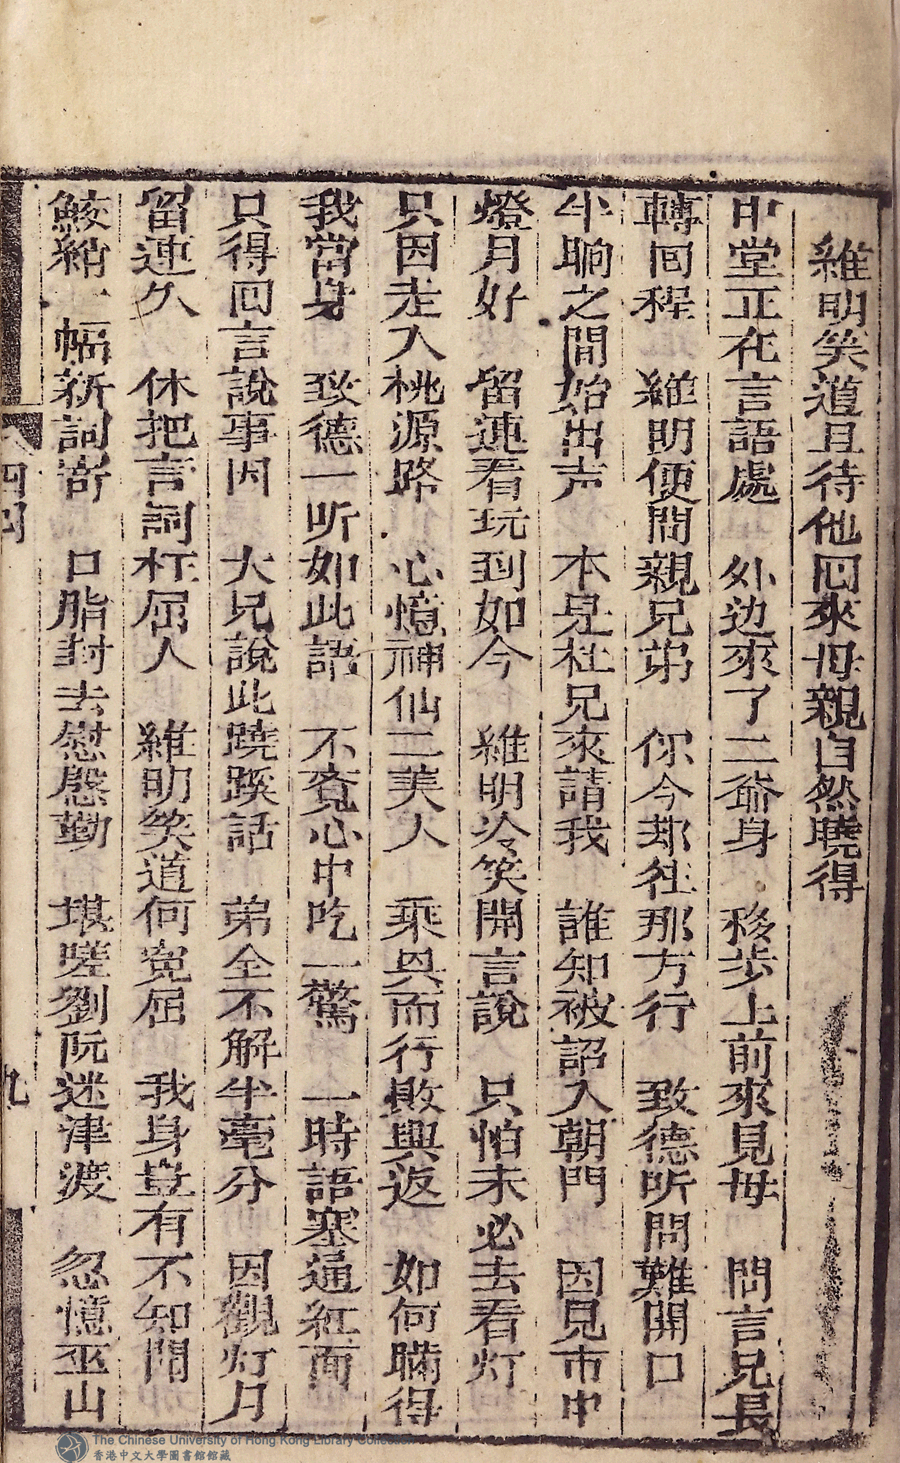 維明笑道且待他囘來母親自然曉得
中堂正在言語處　外边來了二爺身　移步上前來見母　問言兄長
轉囘程　維明便問親兄弟　你今却往那方行　致德听問難開口
半晌之間始出声　本是杜兄來請我　誰知被詔入朝門　因見市中
燈月好　留連看玩到如今　維明冷笑開言說　只怕未必去看灯
只因走入桃源路　心憶神仙二美人　乘具而行敗興返　如何瞞得
我當身　致德一听如此語　不覔心中吃一驚　一時語塞通紅面
只得囘言說事因　大兄說此蹺蹊話　弟全不解半毫分　因觀灯月
留連久　休把言詞枉屈人　維明笑道何寃屈　我身豈有不知聞
鮫綃一幅新詞寄　口脂封去慰慇勤　堪嗟劉阮迷津渡　忽憶巫山
四
九
The Chinese University of Hong Kong Library Collection
香港中文大學圖書館館藏